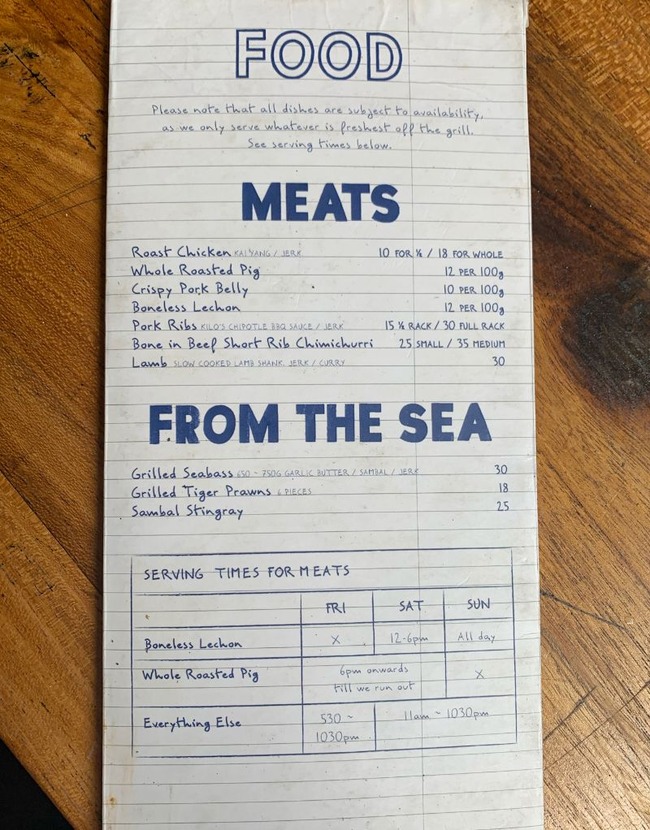 FOOD
Please note that all dishes are subject to availability,
as we only serve whatever is freshest off the grill.
See serving times below.
MEATS
Roast Chicken KAI YANG / JERK 10 FOR ½ / 18 FOR WHOLE
Whole Roasted Pig 12 PER 100g
Crispy Pork Belly 10 PER 100g
Boneless Lechon 12 PER 100g
Pork Ribs KILO'S CHIPOTLE BBQ SAUCE / JERK 15 ½ RACK / 30 FULL RACK
Bone in Beef Short Rib Chimichurri 25 SMALL / 35 MEDIUM
Lamb SLOW COOKED LAMB SHANK, JERK / CURRY 30
FROM THE SEA
Grilled Seabass 650 - 750G GARLIC BUTTER / SAMBAL / JERK 30
Grilled Tiger Prawns 6 PIECES 18
Sambal Stingray 25
SERVING TIMES FOR MEATS
FRI SAT SUN
Boneless Lechon X 12-6pm All day
Whole Roasted Pig 6pm onwards X
till we run out
Everything Else 530 - 11am - 1030pm
1030pm